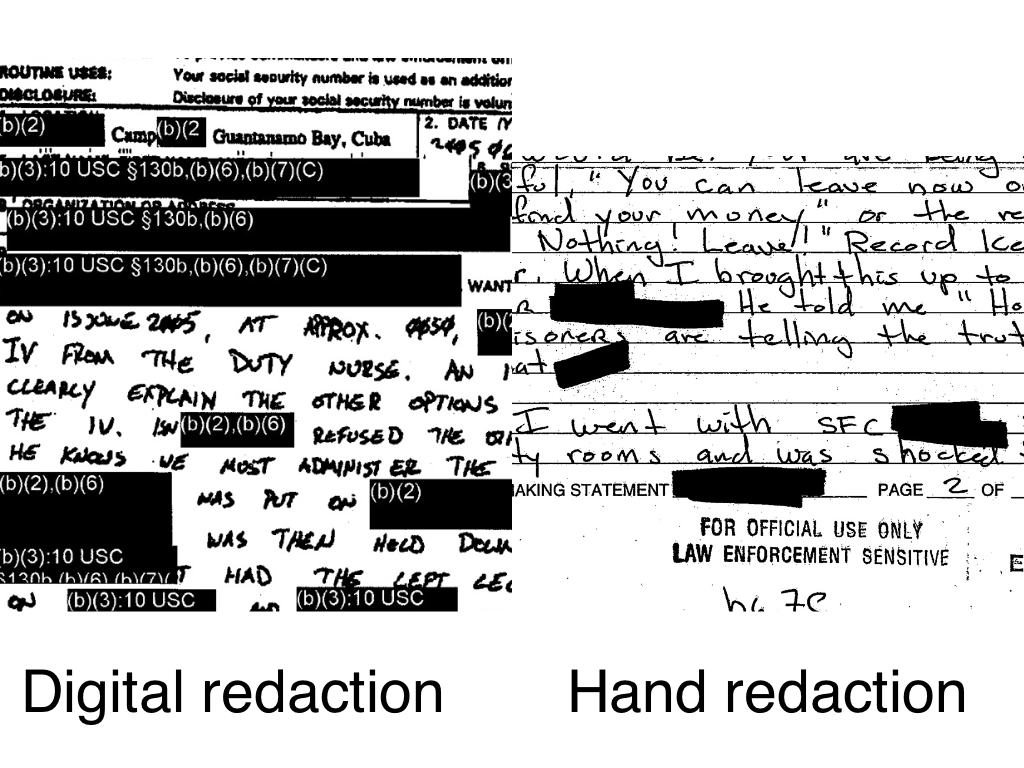 ROUTINE USES: Your social security number is used as an addition
DISCLOSURE: Disclosure of your social security number is volun
1. LOCATION
(b)(2) Camp (b)(2 Guantanamo Bay, Cuba 2. DATE (Y
2005 06
b)(3):10 USC §130b,(b)(6),(b)(7)(C)
(b)(3
ORGANIZATION OR ADDRESS
(b)(3):10 USC §130b,(b)(6)
b)(3):10 USC §130b,(b)(6),(b)(7)(C)
WANT
ON 15 JUNE 2005, AT APPROX. 0650, (b)(
IV FROM THE DUTY NURSE. AN
CLEARLY EXPLAIN THE OTHER OPTIONS
THE IV. ISN (b)(2),(b)(6) REFUSED THE
HE KNOWS WE MUST ADMINISTER THE
(b)(2),(b)(6)
WAS PUT ON (b)(2)
WAS THEN HELD DOWN
b)(3):10 USC
§130b,(b)(6),(b)(7)(C T HAD THE LEFT LEG
ON (b)(3):10 USC AND (b)(3):10 USC
Digital redaction
would be. You are being
ful, "You can leave now o
find your money" or the re
Nothing! Leave!" Record kee
r. When I brought this up to
R He told me "Ho
isoners are telling the trut
at
I went with SFC
ty rooms and was shocked
AKING STATEMENT PAGE 2 OF
FOR OFFICIAL USE ONLY
LAW ENFORCEMENT SENSITIVE
E
b6 7C
Hand redaction